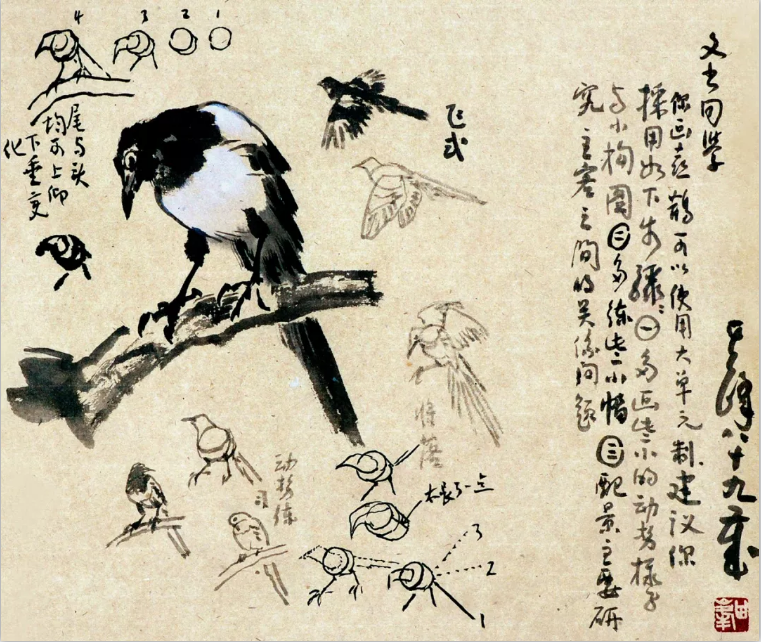 同学
你画喜鹊可以使用大单元制.建议你
採用如下步骤:㊀多画些小的动势样子
与小构图㊁多练些小幅㊂配景主要研
究主宾之间的关系问题
峰八十九岁
4 3 2 1
尾与头
均可上仰
下垂变
化
飞式
将落
动势练
习
太长了一点
3
2
1